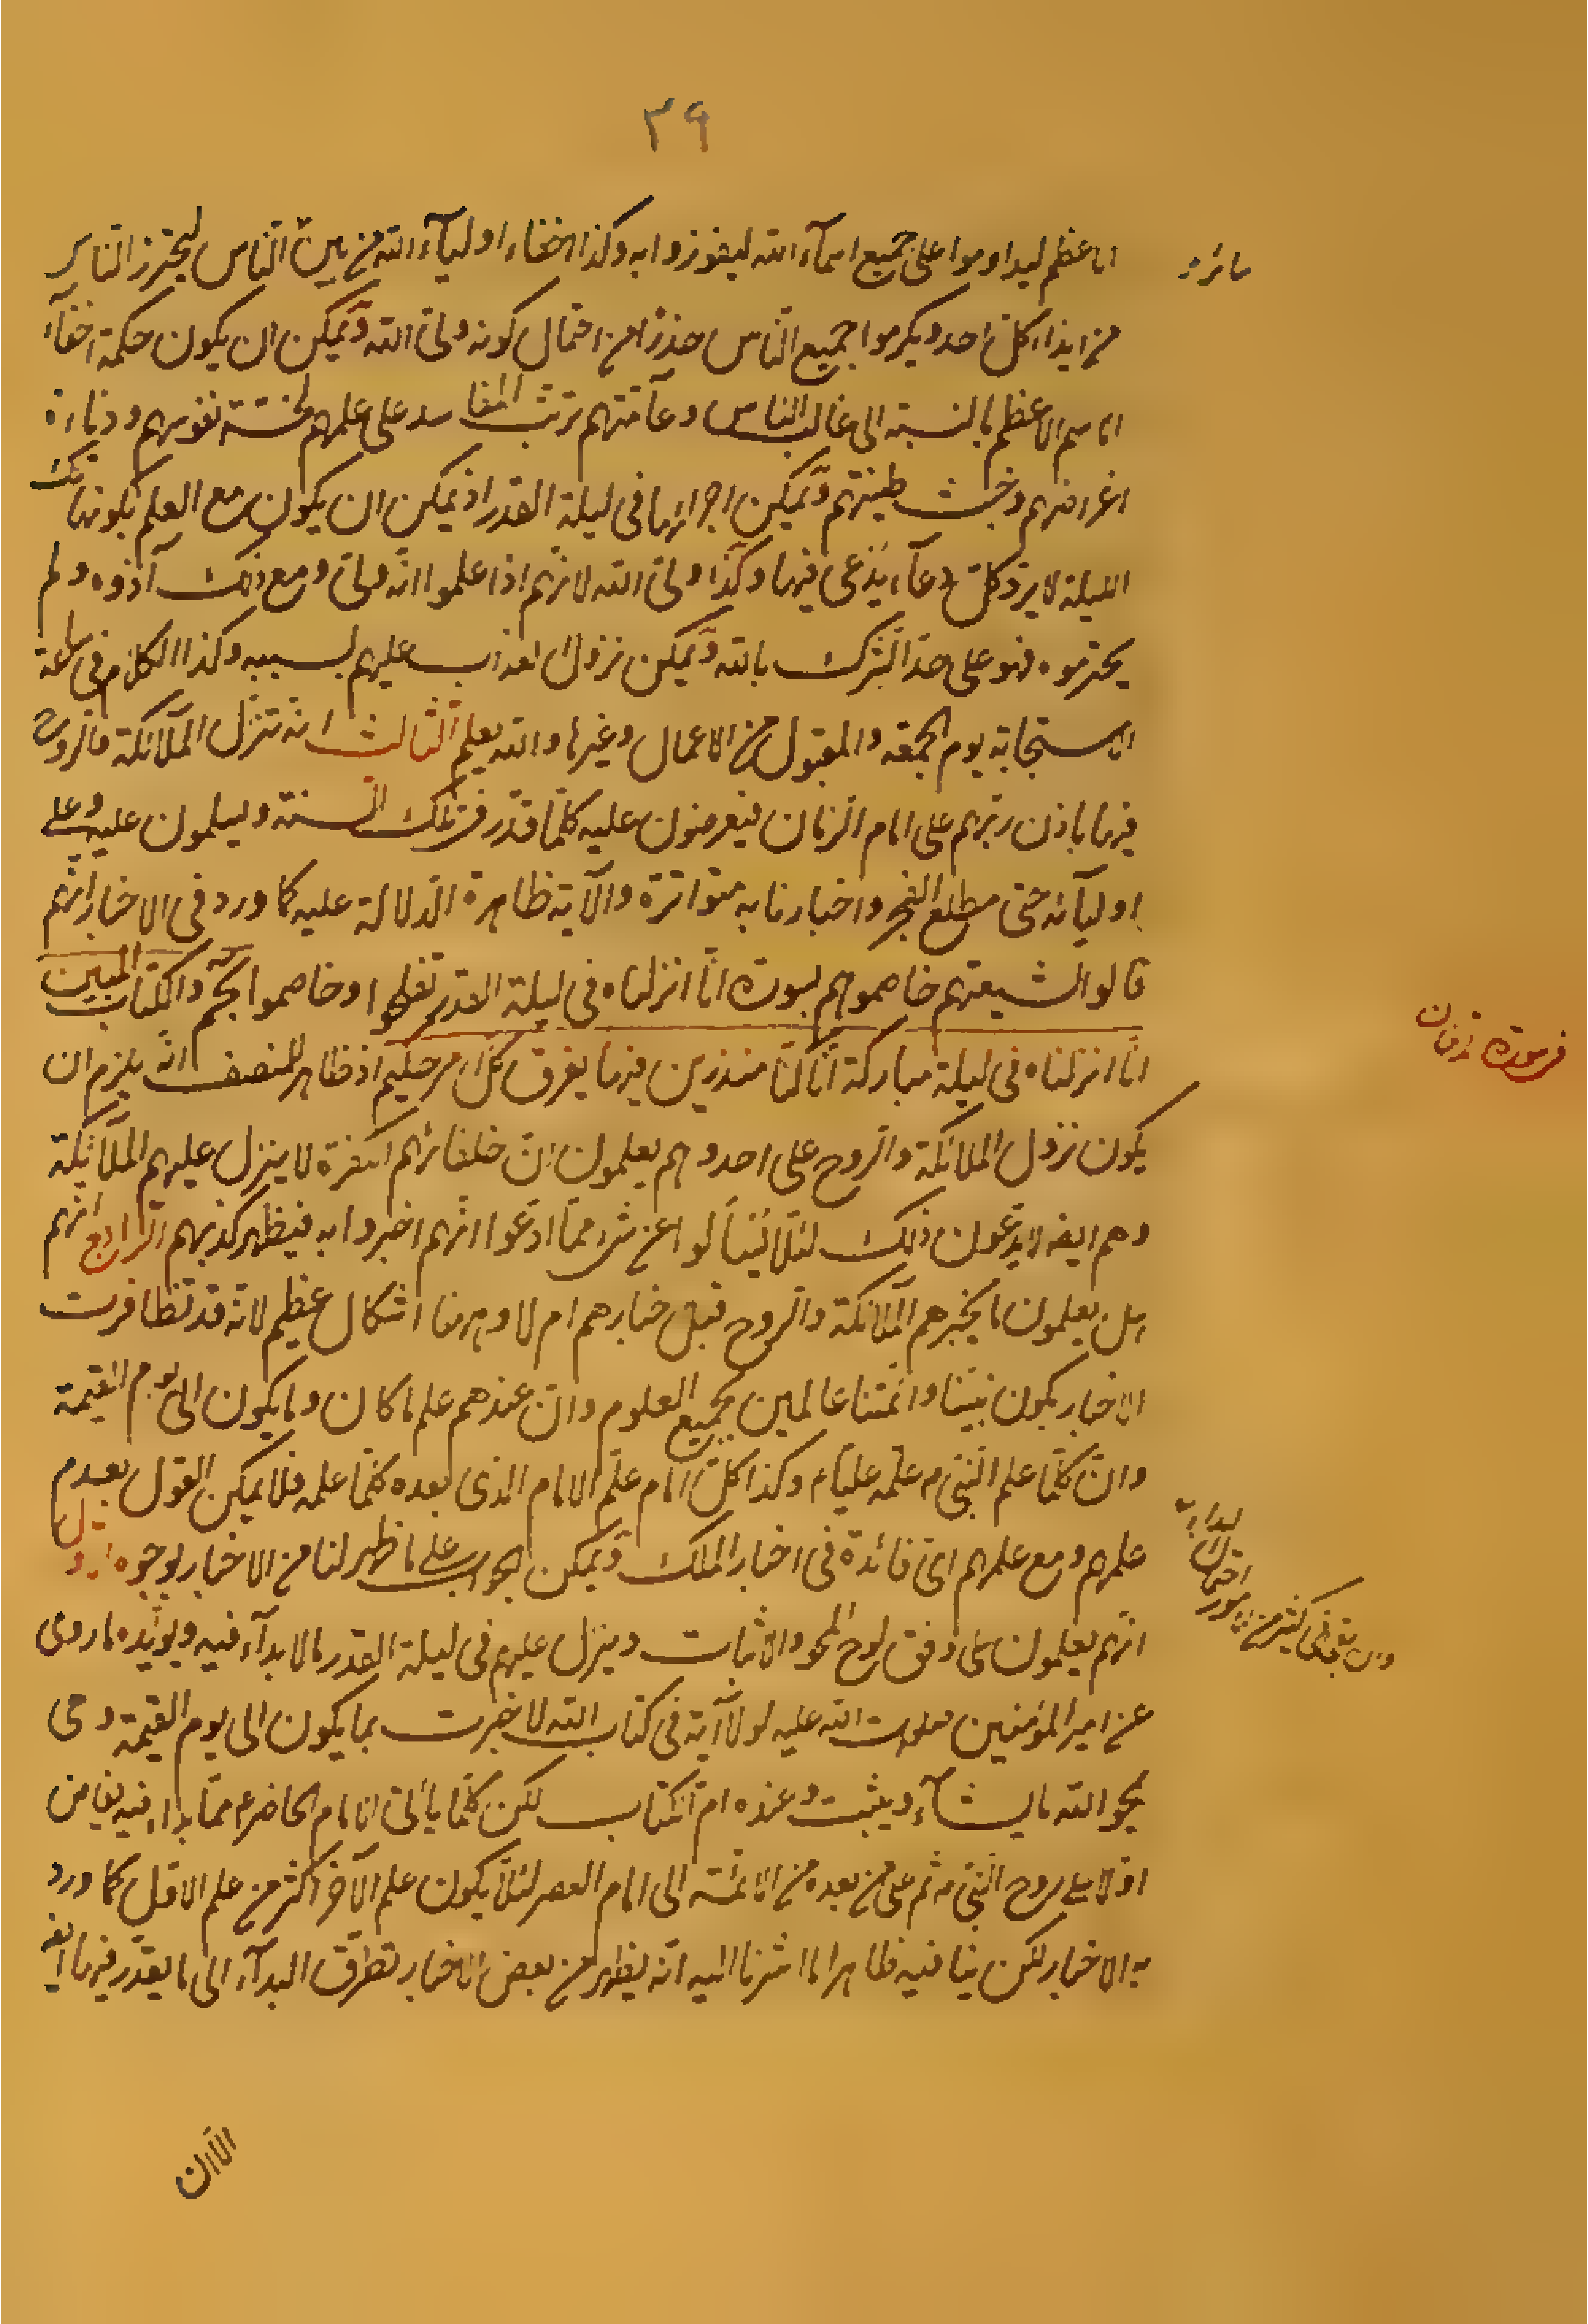 ٣٩
الاعظم ليداوموا على جميع اسمآء الله ليفوزوا به وكذا اخفاء اوليآء الله من بين الناس ليحترز الناس
من ايذاء كل احد ويكرموا جميع الناس حذرًا من احتمال كونه ولى الله ويمكن ان يكون حكمة اخفآء
الاسم الاعظم بالنسبة الى غالب الناس وعآمتهم ترتب المفاسد على علمهم لخسة نفوسهم ودناءة
اغراضهم وخبث طينتهم ويمكن اجرائها فى ليلة القدر اذ يمكن ان يكون مع العلم بكونها تلك
الليلة لا يرد كل دعآء يدعى فيها وكذا ولى الله لانهم اذا علموا انه ولى ومع ذلك آذوه ولم
يحترموه فهو على حد الشرك بالله ويمكن نزول العذاب عليهم بسببه وكذا الكلام فى ساعة
الاستجابة يوم الجمعة والمقبول من الاعمال وغيرها والله يعلم الثالث انه تنزل الملائكة والروح
فيها باذن ربهم على امام الزمان فيعرضون عليه كلما قدر فى تلك السنة ويسلمون عليه وعلى
اوليآئه حتى مطلع الفجر واخبارنا به متواترة والآية ظاهرة الدلالة عليه كما ورد فى الاخبار انهم
قالوا لشيعتهم خاصموهم بسورة انا انزلناه فى ليلة القدر تفلحوا وخاصموا بحم والكتاب المبين
انا انزلناه فى ليلة مباركة انا كنا منذرين فيها يفرق كل امر حكيم اذ ظاهر للمنصف انه يلزم ان
يكون نزول الملائكة والروح على احد وهم يعلمون ان خلفائهم الكفرة لا ينزل عليهم الملآئكة
وهم ايضا لا يدعون ذلك لئلا يسألوا عن شئ مما ادعوا انهم اخبروا به فيظهر كذبهم الرابع انهم
هل يعلمون ما يخبرهم الملائكة والروح قبل اخبارهم ام لا وههنا اشكال عظيم لانه قد تظافرت
الاخبار بكون نبينا وائمتنا عالمين بجميع العلوم وان عندهم علم ما كان وما يكون الى يوم القيمة
وان كلما علم النبى علمه عليا وكذا كل امام علم الامام الذى بعده كلما علمه فلا يمكن القول بعدم
علمهم ومع علمهم اى فائدة فى اخبار الملك ويمكن الجواب على ما ظهر لنا من الاخبار بوجوه الاول
انهم يعلمون على وفق لوح المحو والاثبات وينزل عليهم فى ليلة القدر ما لا بدآء فيه ويؤيده ما روى
عن امير المؤمنين صلوات الله عليه لولا آية فى كتاب الله لاخبرت بما يكون الى يوم القيمة وهى
يمحو الله ما يشآء ويثبت وعنده ام الكتاب لكن كلما يأتى الامام الحاضر مما بدا فيه يفاض
اولا على روح النبى ثم على من بعده من الائمة الى امام العصر لئلا يكون علم الآخر اكثر من علم الاول كما ورد
به الاخبار لكن ينافيه ظاهرا ما اشرنا اليه انه يظهر من بعض الاخبار تطرق البدآء الى ما يقدر فيها ايضا
فى سورة
من
الآن